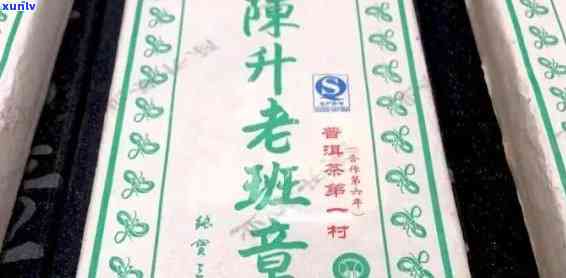 xunitv
陳升老班章
普洱茶第一村
(合作第六年)